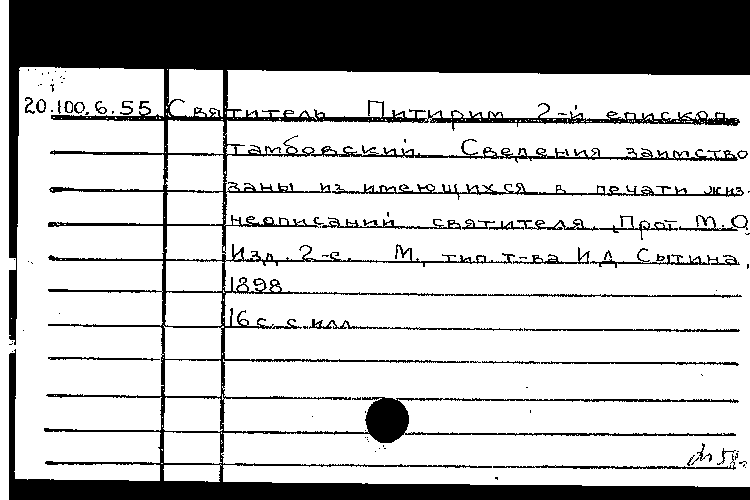 20.100.6.55. Святитель Питирим, 2-й епископ
тамбовский. Сведения заимство
ваны из имеющихся в печати жиз-
неописаний святителя. Прот. М.О.
Изд. 2-е. М., тип. т-ва И.Д. Сытина,
1898
16 с. с илл.